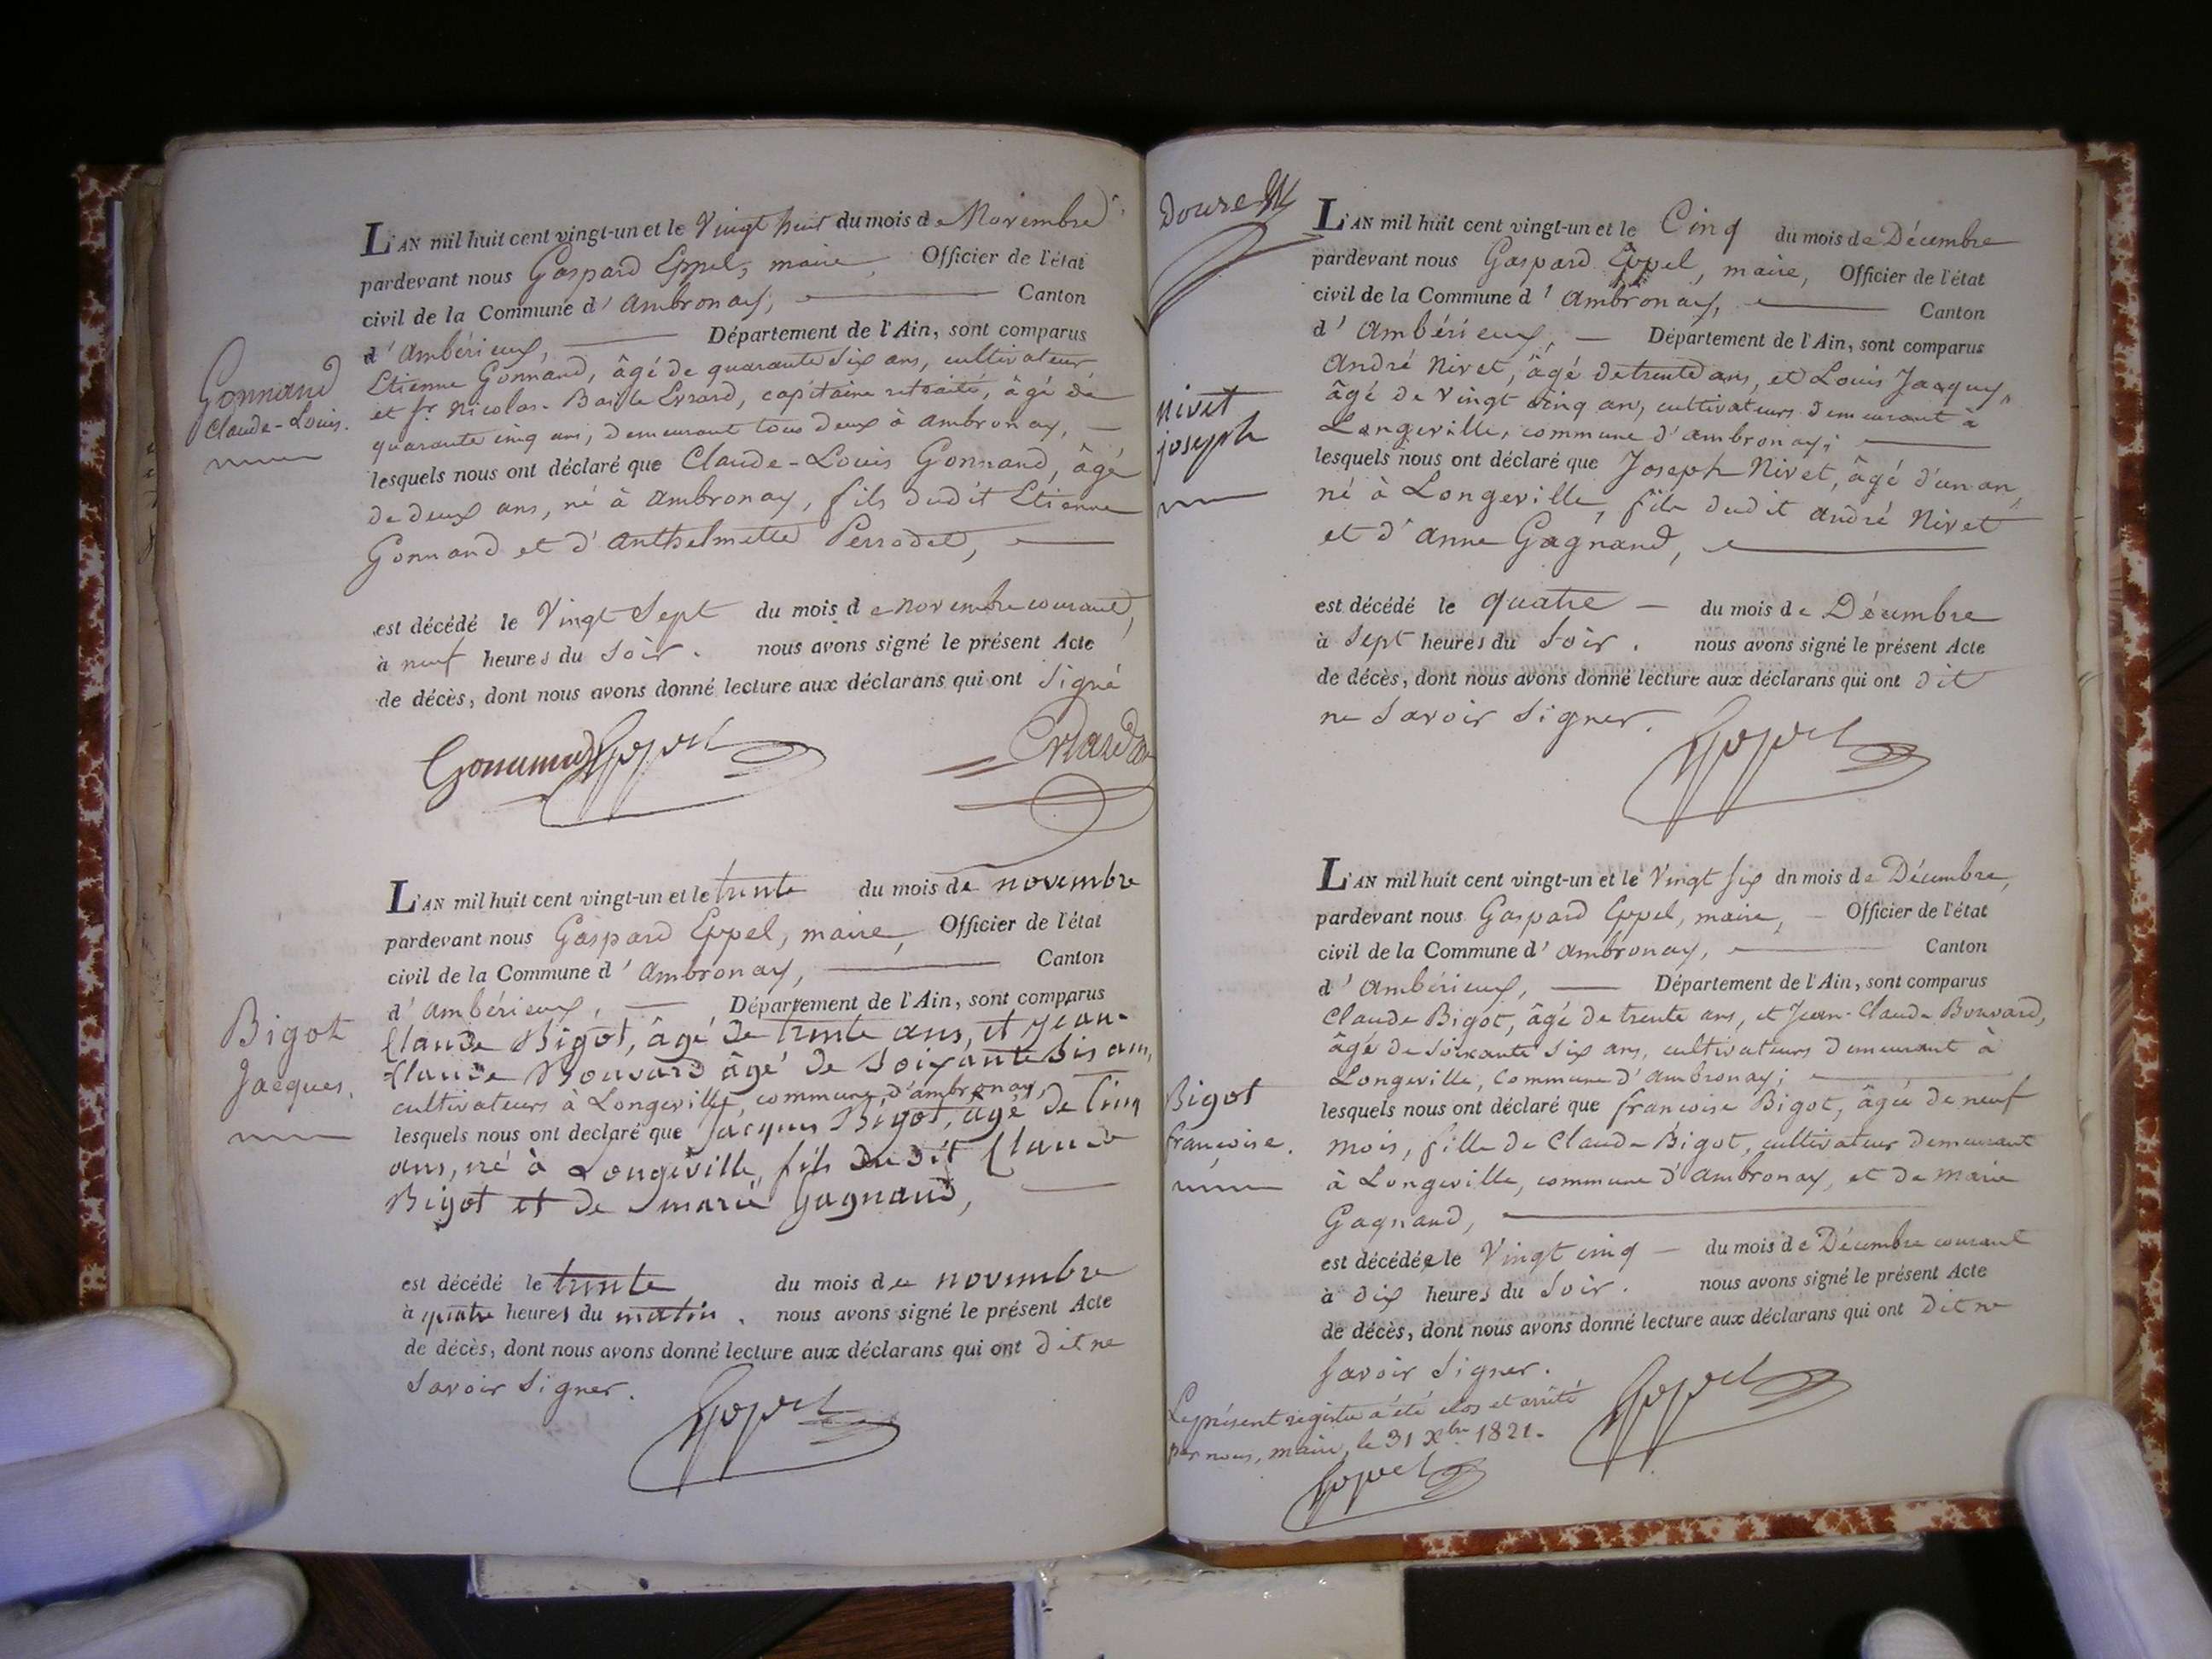 L'AN mil huit cent vingt-un et le Vingt huit du mois de Novembre
pardevant nous Gaspard Eppel, maire, Officier de l'état
civil de la Commune d'ambronay, Canton
d'ambérieux, Département de l'Ain, sont comparus
Gonnand
Claude-Louis.
Etienne Gonnand, âgé de quarante six ans, cultivateur
et Sr Nicolas-Basile Evrard, capitaine retraité, âgé de
quarante cinq ans, demeurant tous deux à ambronay,
lesquels nous ont déclaré que Claude-Louis Gonnand, âgé
de deux ans, né à ambronay, fils dudit Etienne
Gonnand et d'anthelmette Perrodet,
est décédé le Vingt Sept du mois de novembre courant,
à neuf heures du Soir. nous avons signé le présent Acte
de décès, dont nous avons donné lecture aux déclarans qui ont Signé
Gonnand Eppel
L'AN mil huit cent vingt-un et le trente du mois de novembre
pardevant nous Gaspard Eppel, maire, Officier de l'état
civil de la Commune d'ambronay, Canton
d'ambérieux, Département de l'Ain, sont comparus
Bigot
Jacques.
Claude Bigot, âgé de trente ans, et jean-
Claude Bouvard âgé de Soixante Six ans,
cultivateurs à Longeville, commune d'ambronay,
lesquels nous ont declaré que jacques Bigot, âgé de Cinq
ans, né à Longeville, fils dudit Claude
Bigot et de marie gagnand,
est décédé le trente du mois de novembre
à quatre heures du matin. nous avons signé le présent Acte
de décès, dont nous avons donné lecture aux déclarans qui ont dit ne
Savoir Signer.
Eppel
L'AN mil huit cent vingt-un et le Cinq du mois de Décembre
pardevant nous Gaspard Eppel, maire, Officier de l'état
civil de la Commune d'ambronay, Canton
d'ambérieux, Département de l'Ain, sont comparus
nivet
joseph
André Nivet, âgé de trente ans, et Louis Jacquey,
âgé de Vingt cinq ans, cultivateurs demeurant à
Longeville, commune d'ambronay;
lesquels nous ont déclaré que Joseph Nivet, âgé d'un an,
né à Longeville, fils dudit andré Nivet
et d'anne Gagnand,
est décédé le quatre du mois de Décembre
à Sept heures du Soir. nous avons signé le présent Acte
de décès, dont nous avons donné lecture aux déclarans qui ont dit
ne Savoir Signer.
Eppel
L'AN mil huit cent vingt-un et le Vingt Six dn mois de Décembre,
pardevant nous Gaspard Eppel, maire, Officier de l'état
civil de la Commune d'ambronay, Canton
d'ambérieux, Département de l'Ain, sont comparus
Claude Bigot, âgé de trente ans, et Jean-Claude Bouvard,
âgé de Soixante Six ans, cultivateurs demeurant à
Longeville, commune d'ambronay;
Bigot
françoise.
lesquels nous ont déclaré que françoise Bigot, âgée de neuf
mois, fille de Claude Bigot, cultivateur demeurant
à Longeville, commune d'ambronay, et de marie
Gagnand,
est décédée le Vingt cinq du mois de Décembre courant
à dix heures du Soir. nous avons signé le présent Acte
de décès, dont nous avons donné lecture aux déclarans qui ont dit ne
Savoir Signer.
Eppel
Le présent registre a été clos et arrêté
par nous, maire, le 31 Xbre 1821.
Eppel